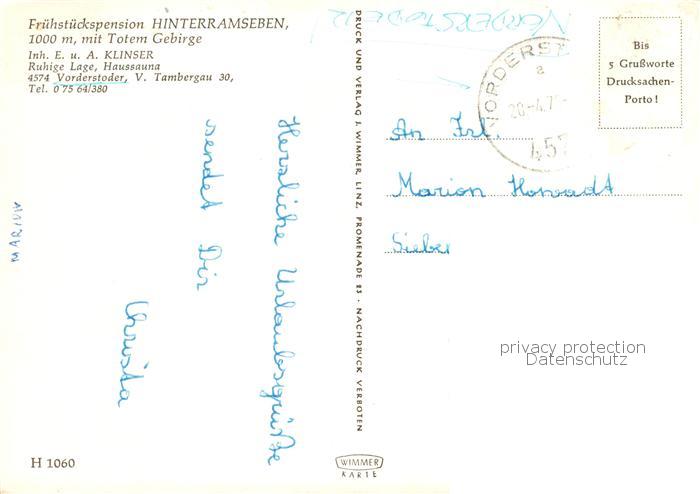 Frühstückspension HINTERRAMSEBEN,
1000 m, mit Totem Gebirge
Inh. E. u. A. KLINSER
Ruhige Lage, Haussauna
4574 Vorderstoder, V. Tambergau 30,
Tel. 0 75 64/380
VORDERSTODER
Herzliche Urlaubsgrüße
sendet Dir
Christa
H 1060
DRUCK UND VERLAG J. WIMMER, LINZ, PROMENADE 23 · NACHDRUCK VERBOTEN
WIMMER
KARTE
VORDERST
a
20.-4.7
457
Bis
5 Grußworte
Drucksachen-
Porto!
An Frl.
Marion
Sieber
privacy protection
Datenschutz